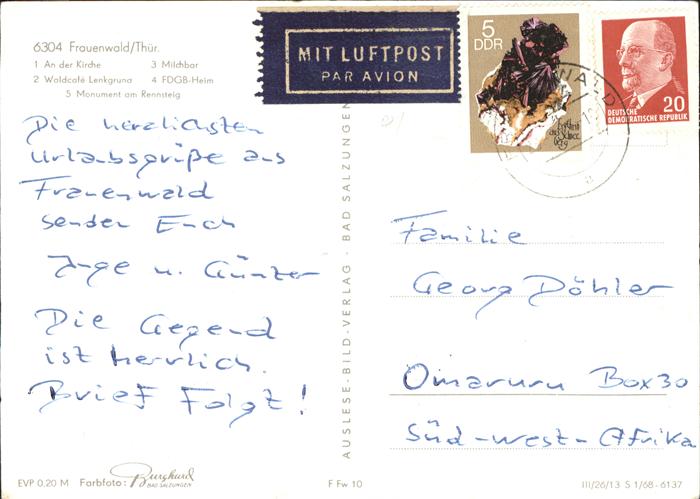 6304 Frauenwald/Thür.
1 An der Kirche 3 Milchbar
2 Waldcafé Lenkgruna 4 FDGB-Heim
5 Monument am Rennsteig
Die herzlichsten
Urlaubsgrüße aus
Frauenwald
senden Euch
Inge u. Günter
Die Gegend
ist herrlich.
Brief folgt!
EVP 0,20 M Farbfoto: Burghard
BAD SALZUNGEN
AUSLESE-BILD-VERLAG · BAD SALZUNGEN
F Fw 10
MIT LUFTPOST
PAR AVION
5
DDR
20
DEUTSCHE
DEMOKRATISCHE REPUBLIK
WALD
Familie
Georg Döhler
Omaruru Box 30
Süd-west-Afrika
III/26/13 S 1/68-6137